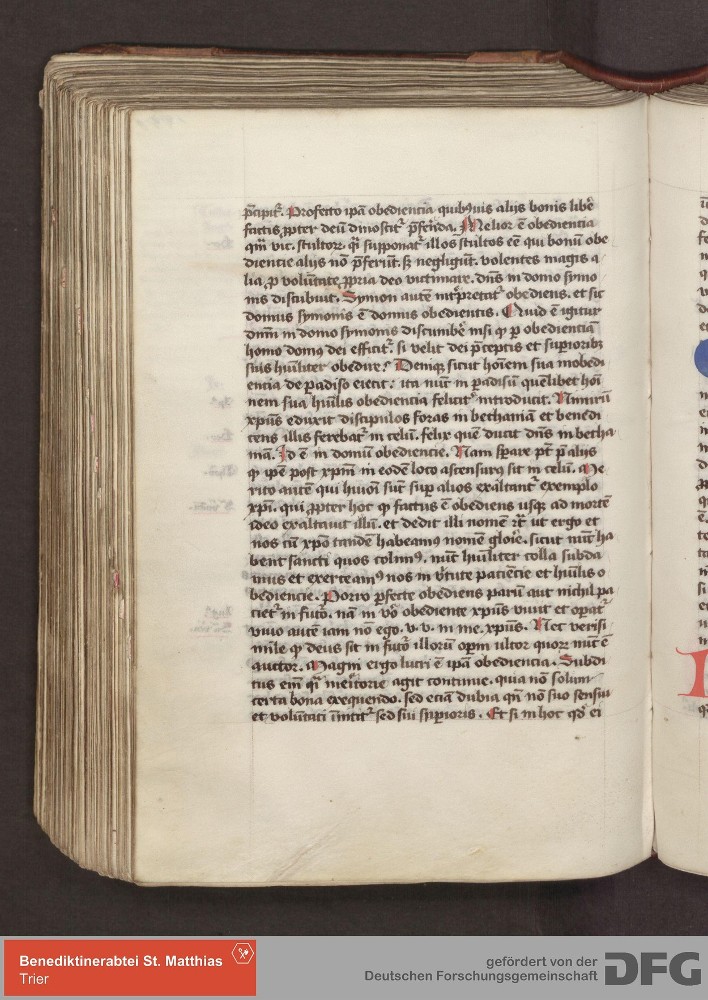 p̄cipit᷑. Profecto ip̄a obediencia quibꝰuis alijs bonis libe᷑
factis ꝓpter deū dinoscit᷑ p̄fer̄da. Melior ē obediencia
qm̄ vic. stultorꝝ. q᷑ supponat᷑ illos stultos eē̄ qui bonū obe
diencie alijs nō p̄feriūt. sꝫ negligūt. volentes magis a
lia, ꝑ volūtate ꝓpria deo victimare. dn̄s in domo symo
nis discubuit. Symon autē int̓pretat᷑ obediens. et sic
domus symonis ē domus obedientis. Quid ē igitur
dn̄m in domo symonis discumbe᷑ nisi ꝙ ꝑ obedienciā
homo domꝰ dei efficit᷑. si velit dei p̄ceptis et suꝑioribꝫ
suis hūilit̓ obedire? Deniqꝫ sicut hoı̄em sua inobedi
encia de padiso eiecit: ita nūc in padisū quēlibet hoı̄
nem sua hūilis obediencia felicit᷑ introducit. Nimirū
xpūs eduxit discipulos foras in bethaniā et benedi
cens illis ferebat᷑ in celū. felix quē ducit dn̄s in betha
niā. Id ē in domū obediencie. Nam spare pt̄ p̄ alijs
ꝙ ip̄e post xpm̄ in eodē loco ascensurꝰ sit in celū. Me
rito autē qui hūiōn sūt suꝑ alios exaltant᷑ exemplo
xp̄i. qui ꝓpter hoc ꝙ factus ē obediens usqꝫ ad mortē
ideo exaltauit illū. et dedit illi nomē rc̄ ut ergo et
nos cū xp̄o tandē habeamꝰ nomē glōie. sicut nūc ha
bent sancti quos colimꝰ. nūc hūilit̓er colla subda
mus et exerceamꝰ nos in v̓tute paciēcie et hūilis o
bediencie. Porro ꝑfecte obediens parū aut nichil pa
ciet᷑ in futō. nam in vo᷑ obediente xpūs viuit et oꝑat᷑
viuo autē iam nō ego. v. v. in me. xpūs. Nec verisi
mile ꝙ deus sit in futō illorū oꝑm ultor quorꝝ nūc ē
auctor. Magni ergo lucri ē ip̄a obediencia. Subdi
tus em̄ q᷑ meritorie agit continue. quia nō solum
certa bona exequendo. sed eciā dubia qn̄ nō suo sensui
et volūtati innitit᷑ sed sui suꝑioris. Et si in hoc qd̓ ei
Benediktinerabtei St. Matthias
Trier
gefördert von der
Deutschen Forschungsgemeinschaft
DFG